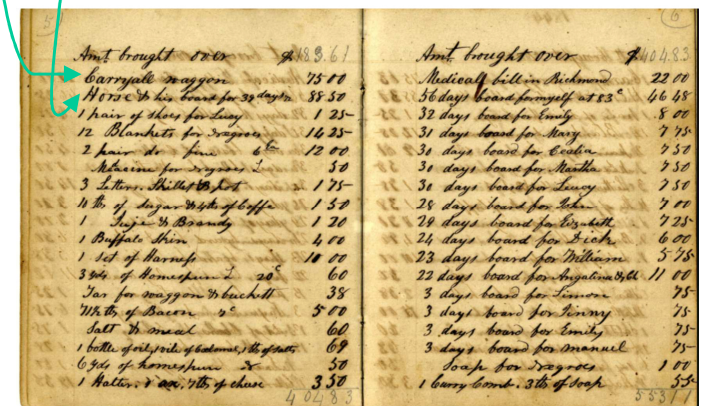 5
Amt brought over $183.61
Carryall waggon 75 00
Horse & his board for 39 days 88 50
1 pair of shoes for Lucy 1 25
12 Blankets for Negroes 14 25
2 pair do fine 12 00
Medicine for Negroes 50
3 Setters. Skillet & pot 1 75
10 lbs of Sugar & 4 lb of Coffe 1 50
1 & Brandy 1 20
1 Buffalo Skin 4 00
1 Set of Harness 10 00
3 yds of Homespun 20c 60
Tar for waggon & buckett 38
71½ lbs of Bacon 7c 5 00
Salt & meal 60
1 bottle of oil, 1 vile of Calomel, 1 lb of salts 69
6 yds of homespun 50
1 Halter. 1 ax. 7 lb of cheese 3 50
404 83
6
Amt brought over $404.83
Medical bill in Richmond 22 00
56 days board for myself at 83c 46 48
32 days board for Emily 8 00
31 days board for Mary 7 75
30 days board for Cealia 7 50
30 days board for Martha 7 50
30 days board for Lucy 7 50
28 days board for John 7 00
29 days board for Elizabeth 7 25
24 days board for Dick 6 00
23 days board for William 5 75
22 days board for Angalina & 11 00
3 days board for Simon 75
3 days board for Jinny 75
3 days board for Emily 75
3 days board for manuel 75
Soap for Negroes 1 00
1 Curry Comb. 3 lb of Soap 55
553 11